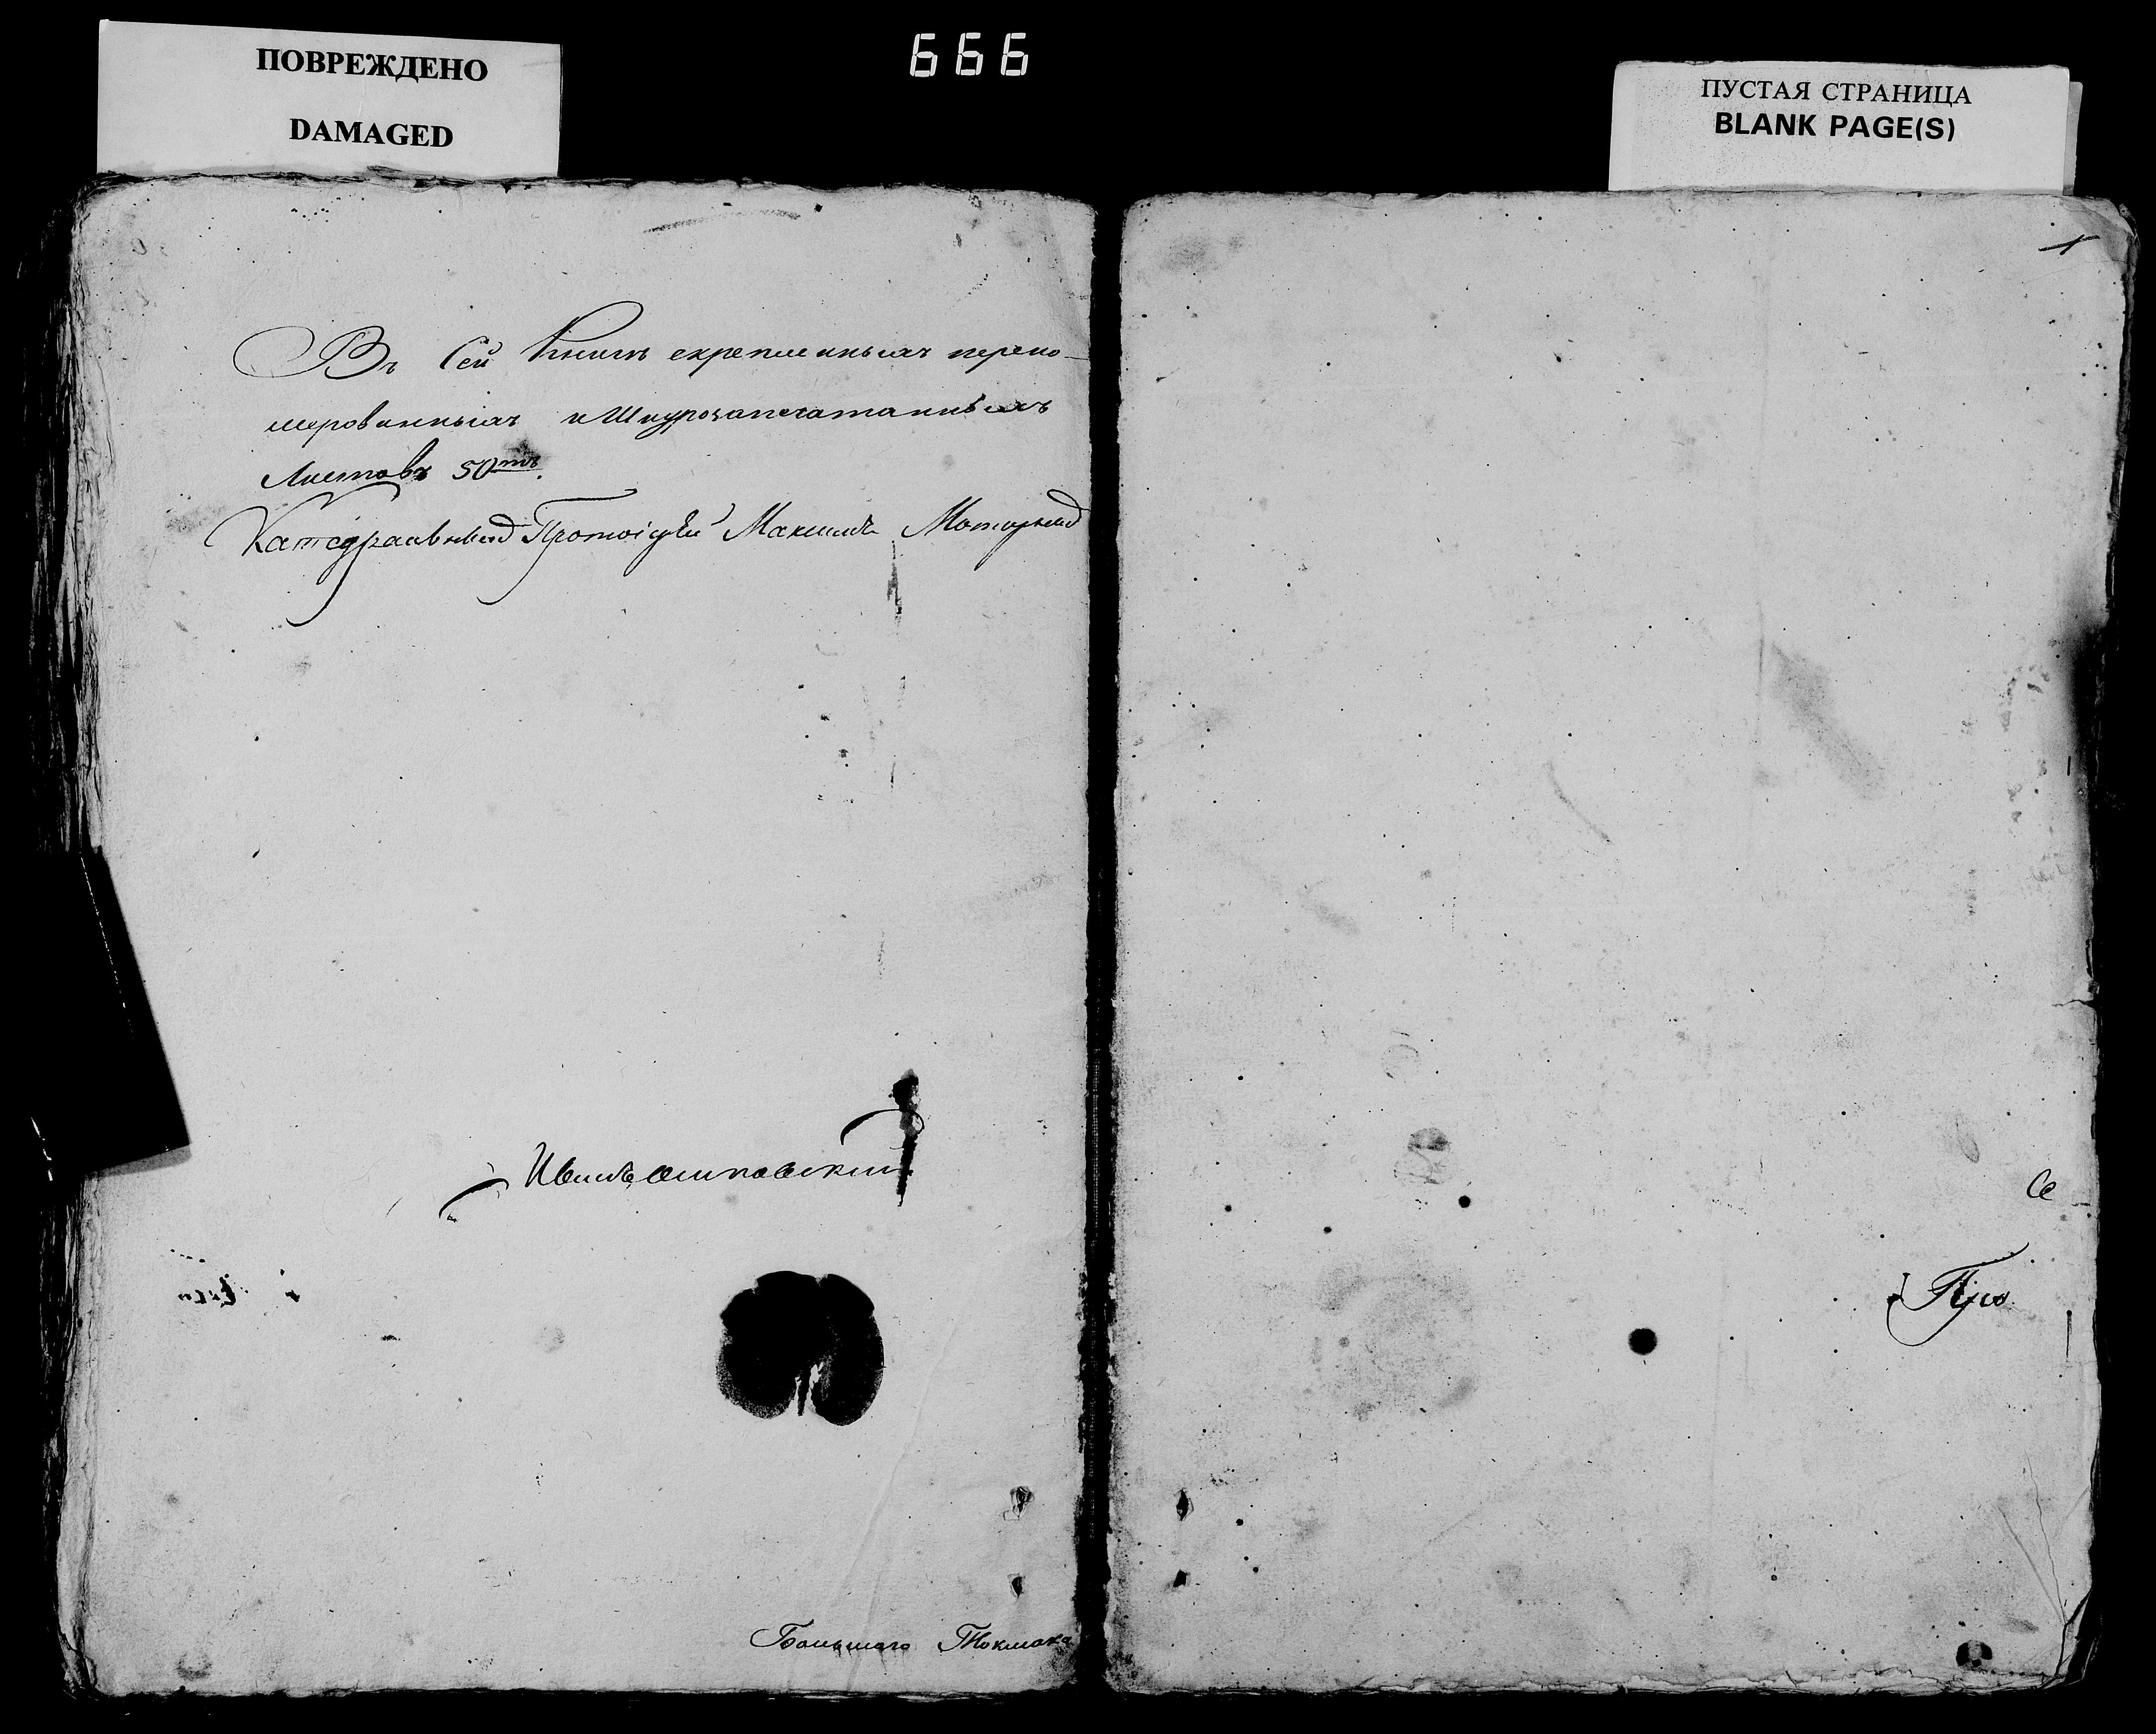 ПОВРЕЖДЕНО
DAMAGED
666
ПУСТАЯ СТРАНИЦА
BLANK PAGE(S)
1
Въ Сей Книгѣ скрепленныхъ перено-
мерованныхъ и Шнурозапечатанныхъ
Листовъ 50тъ.
Катедральный Протоіерей Максимъ
Большаго Токмака
Се
Про